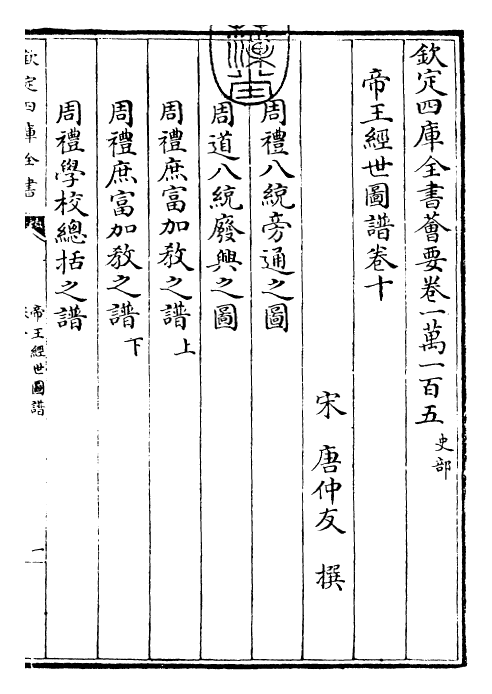 欽定四庫全書薈要卷一萬一百五 史部
帝王經世圖譜卷十
宋 唐仲友 撰
周禮八統旁通之圖
周道八統廢興之圖
周禮庶富加教之譜上
周禮庶富加教之譜下
周禮學校總括之譜
欽定四庫全書
帝王經世圖譜
一